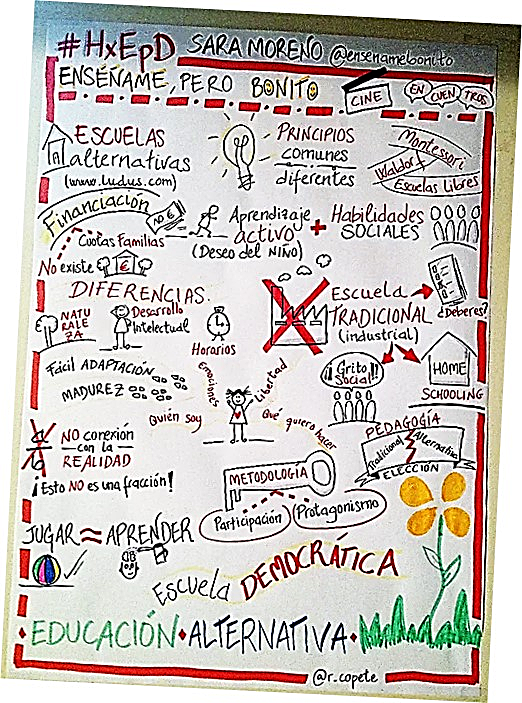 #HxEpD SARA MORENO @ensenamebonito
ENSÉÑAME, PERO BONITO
CINE
EN CUEN TROS
ESCUELAS
alternativas
(www.ludus.com)
PRINCIPIOS
comunes
diferentes
Montessori
Waldorf
Escuelas Libres
Financiación
NO €
Cuotas Familias
No existe
€
Aprendizaje
activo
(Deseo del NIÑO)
+
Habilidades
SOCIALES
DIFERENCIAS.
NATU
RALE
ZA
Desarrollo
Intelectual
Horarios
Escuela
TRADICIONAL
(industrial)
¿Deberes?
Fácil ADAPTACIÓN
MADUREZ
Emociones
Libertad
Quién soy
Qué quiero hacer
¡¡Grito
Social!!
HOME
SCHOOLING
NO conexión
con la
REALIDAD
¡Esto NO es una fracción!
PEDAGOGÍA
Tradicional
Alternativa
ELECCIÓN
METODOLOGIA
Participación
Protagonismo
JUGAR ≈ APRENDER
Escuela DEMOCRÁTICA
EDUCACIÓN • ALTERNATIVA •
@r.copete